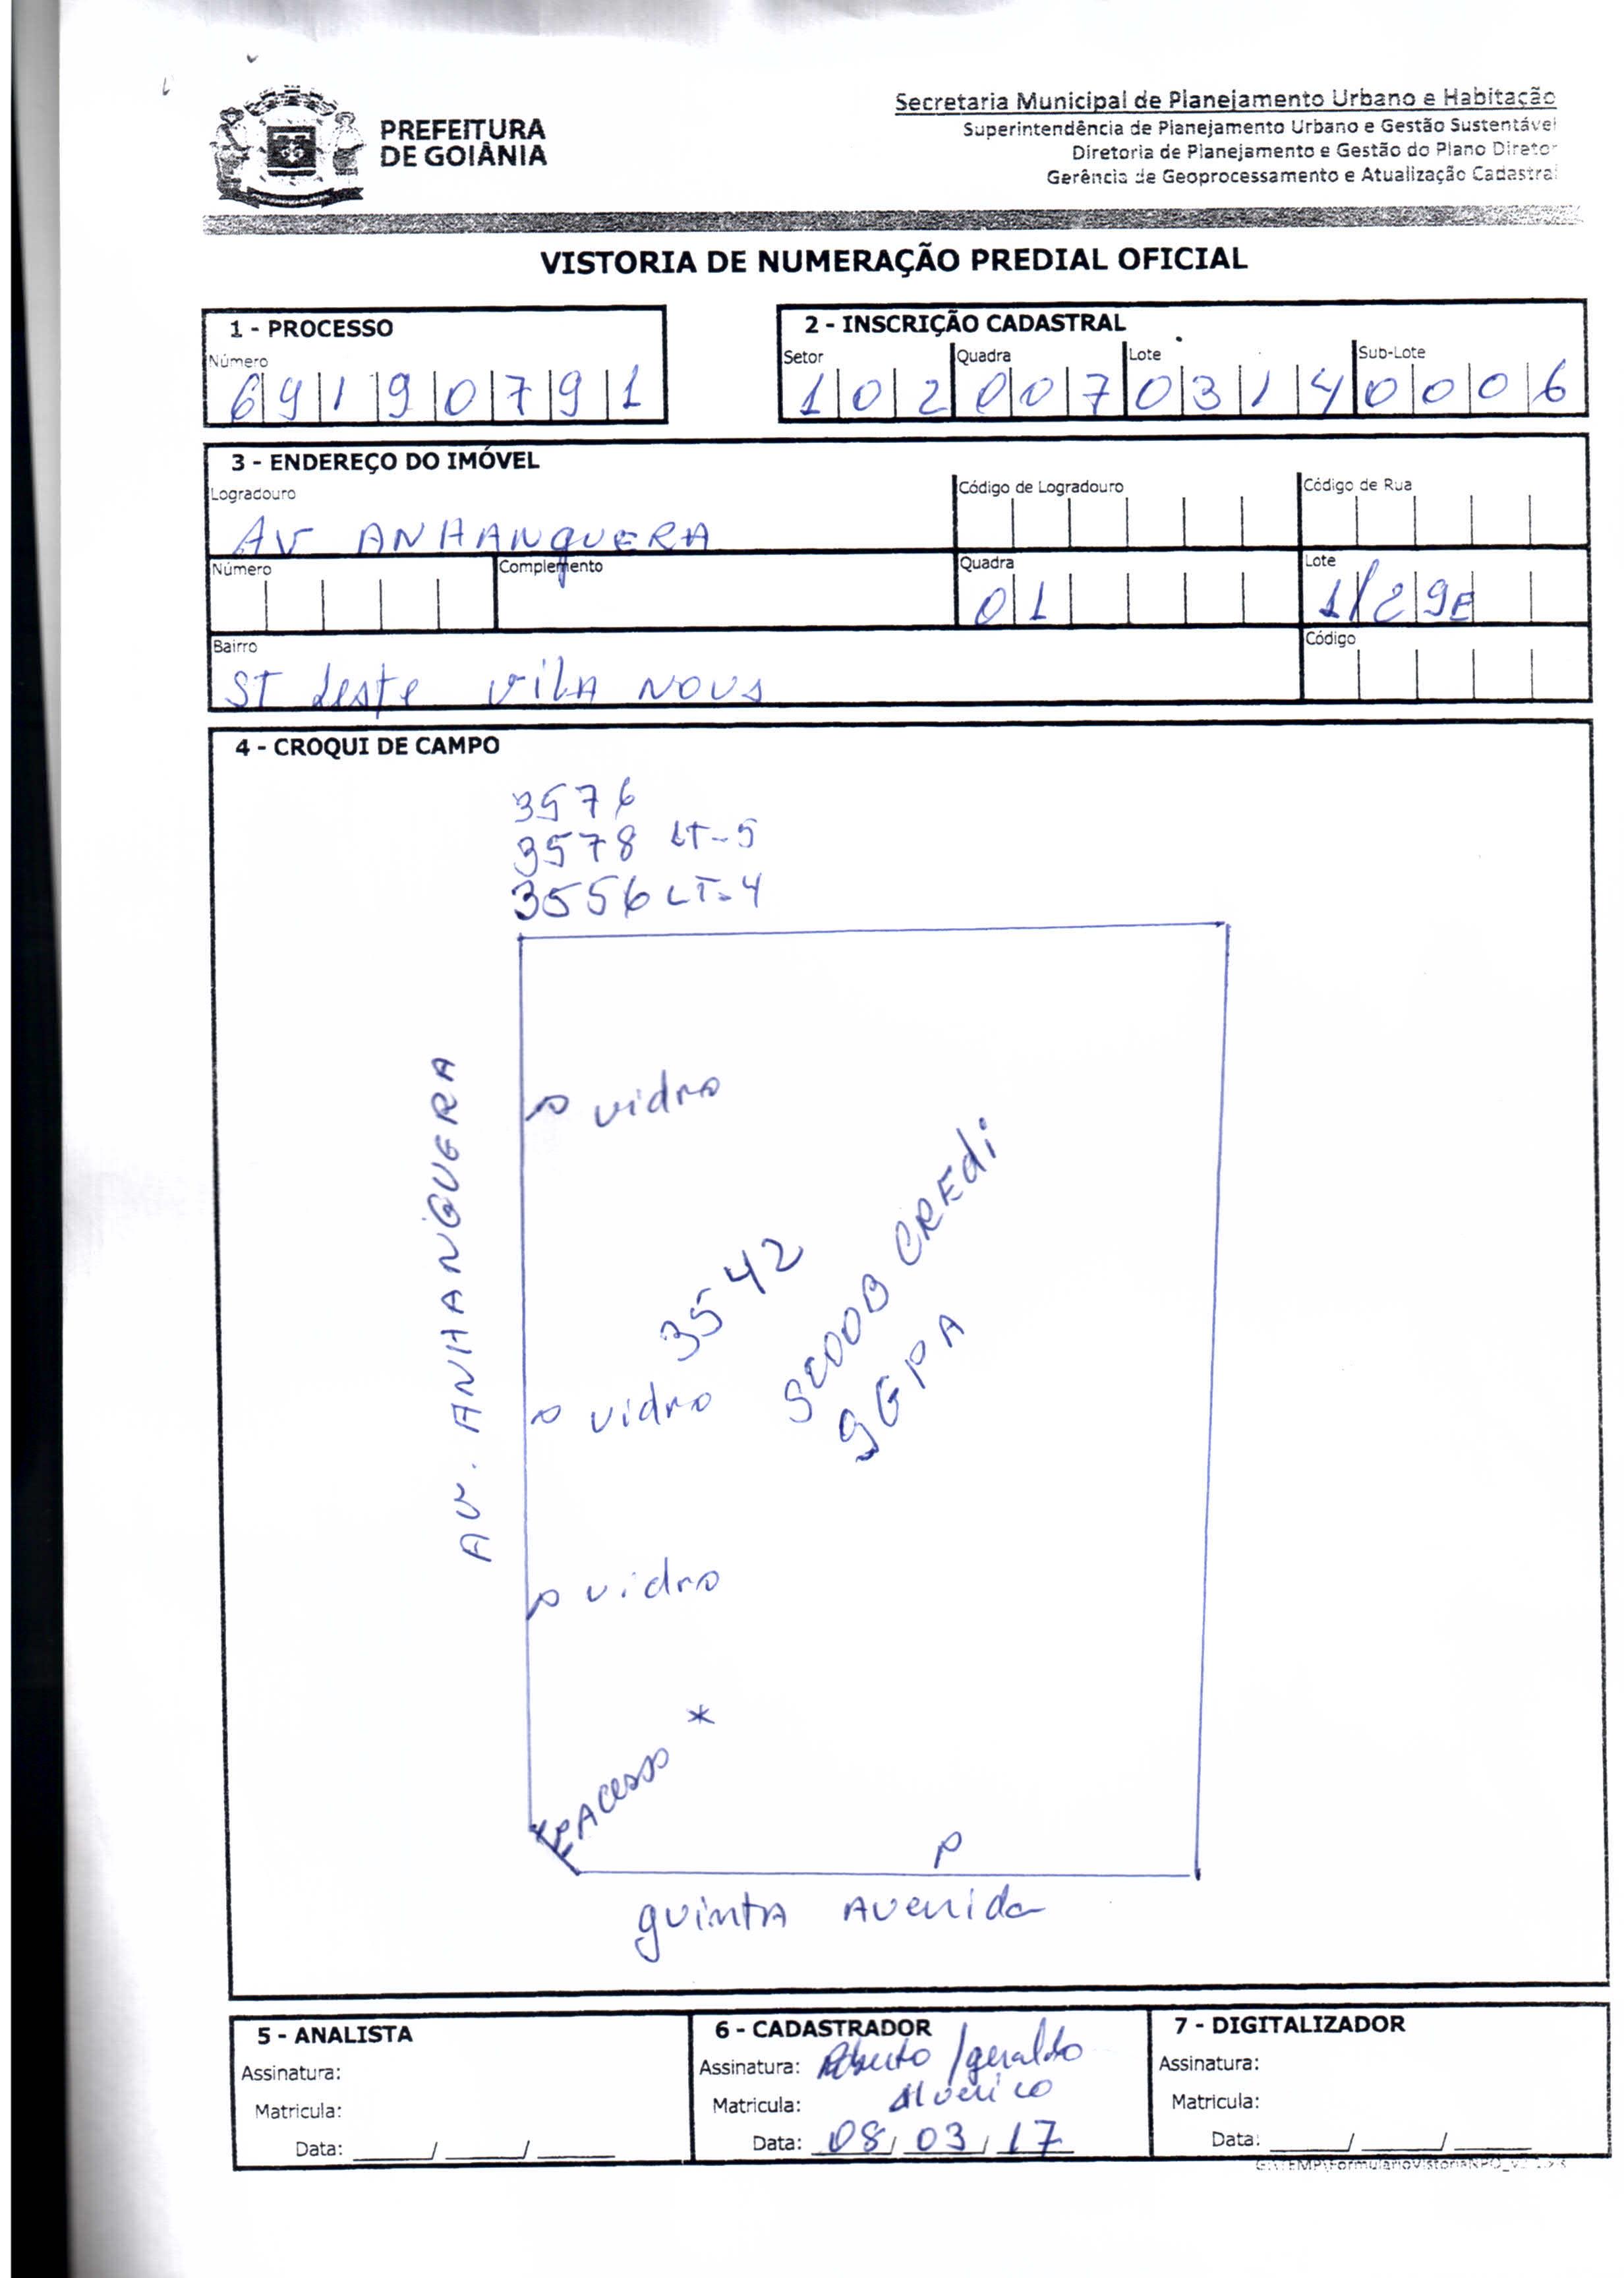 PREFEITURA
DE GOIÂNIA
Secretaria Municipal de Planejamento Urbano e Habitação
Superintendência de Planejamento Urbano e Gestão Sustentável
Diretoria de Planejamento e Gestão do Plano Diretor
Gerência de Geoprocessamento e Atualização Cadastral
VISTORIA DE NUMERAÇÃO PREDIAL OFICIAL
1 - PROCESSO
Número
69190791
2 - INSCRIÇÃO CADASTRAL
Setor Quadra Lote Sub-Lote
102 007 0314 0006
3 - ENDEREÇO DO IMÓVEL
Logradouro Código de Logradouro Código de Rua
AV ANHANQUERA
Número Complemento Quadra Lote
01 1/29E
Bairro Código
ST Leste VILA NOVA
4 - CROQUI DE CAMPO
3576
3578 LT-5
3556 LT-4
AV. ANHANGUERA
P vidro
3542
SCOOB CREDI
SGPA
P vidro
P vidro
Acesso *
P
quinta Avenida
5 - ANALISTA
Assinatura:
Matricula:
Data: ____/____/____
6 - CADASTRADOR
Assinatura: Roberto /geraldo
Matricula: Alverico
Data: 08/03/17
7 - DIGITALIZADOR
Assinatura:
Matricula:
Data: ____/____/____